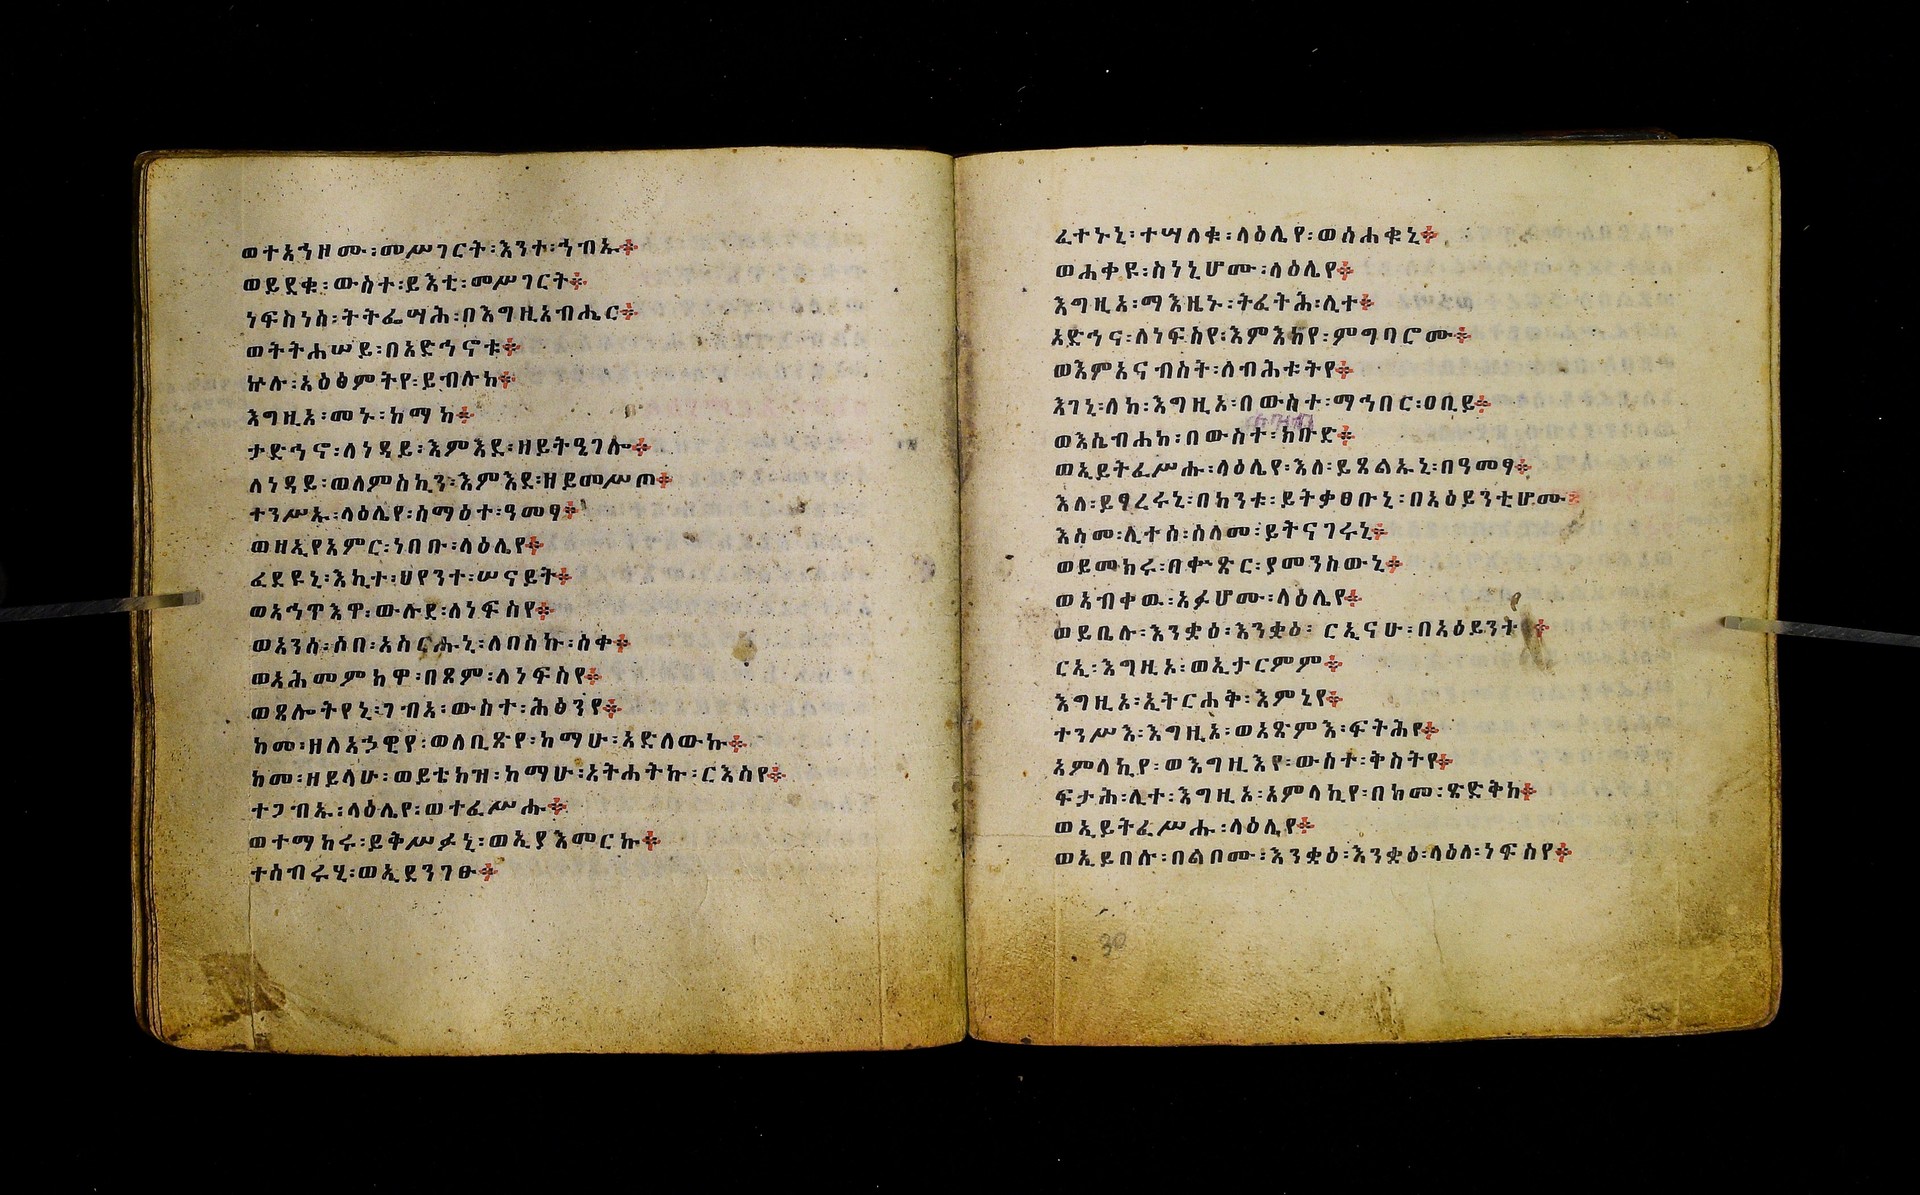 ወተአኀዞሙ፡መሥገርት፡እንተ፡ኀብኡ፨
ወይደቁ፡ውስተ፡ይእቲ፡መሥገርት፨
ነፍስነሰ፡ትትፌሣሕ፡በእግዚአብሔር፨
ወትትሐሠይ፡በአድኅኖቱ፨
ኵሉ፡አዕፅምትየ፡ይብሉከ፨
እግዚአ፡መኑ፡ከማከ፨
ታድኅኖ፡ለነዳይ፡እምእደ፡ዘይትዔገሎ፨
ለነዳይ፡ወለምስኪን፡እምእደ፡ዘይመሥጦ፨
ተንሥኡ፡ላዕሌየ፡ስማዕተ፡ዓመፃ፨
ወዘኢየአምር፡ነበቡ፡ላዕሌየ፨
ፈደዩኒ፡እኪተ፡ህየንተ፡ሠናይት፨
ወአኅጥእዋ፡ውሉደ፡ለነፍስየ፨
ወአንሰ፡ሶበ፡አስርሑኒ፡ለበስኩ፡ሰቀ፨
ወአሕመምክዋ፡በጾም፡ለነፍስየ፨
ወጸሎትየኒ፡ገብአ፡ውስተ፡ሕፅንየ፨
ከመ፡ዘለእኃዊየ፡ወለቢጽየ፡ከማሁ፡አድለውኩ፨
ከመ፡ዘይላሁ፡ወይቴክዝ፡ከማሁ፡አትሐትኩ፡ርእስየ፨
ተጋብኡ፡ላዕሌየ፡ወተፈሥሑ፨
ወተማከሩ፡ይቅሥፉኒ፡ወኢያእመርኩ፨
ተሰብሩሂ፡ወኢደንገፁ፨
ፈተኑኒ፡ተሣለቁ፡ላዕሌየ፡ወሰሐቁኒ፨
ወሐቀዩ፡ስነኒሆሙ፡ላዕሌየ፨
እግዚአ፡ማእዜኑ፡ትፈትሕ፡ሊተ፨
አድኅና፡ለነፍስየ፡እምእከየ፡ምግባሮሙ፨
ወእምአናብስት፡ለብሕቱትየ፨
እገኒ፡ለከ፡እግዚአ፡በውስተ፡ማኅበር፡ዐቢይ፨
ወእሴብሐከ፡በውስተ፡ክቡድ፨
ወኢይትፌሥሑ፡ላዕሌየ፡እለ፡ይጸልኡኒ፡በዓመፃ፨
እለ፡ይፃረሩኒ፡በከንቱ፡ይትቃፀቡኒ፡በአዕይንቲሆሙ፨
እስመ፡ሊተሰ፡ሰላመ፡ይትናገሩኒ፨
ወይመክሩ፡በቍጽር፡ያመንስውኒ፨
ወአብቀዉ፡አፉሆሙ፡ላዕሌየ፨
ወይቤሉ፡እንቋዕ፡እንቋዕ፡ርኢናሁ፡በአዕይንት፨
ርኢ፡እግዚአ፡ወኢታርምም፨
እግዚአ፡ኢትርሐቅ፡እምኒየ፨
ተንሥእ፡እግዚአ፡ወአጽምእ፡ፍትሕየ፨
አምላኪየ፡ወእግዚእየ፡ውስተ፡ቅስትየ፨
ፍታሕ፡ሊተ፡እግዚአ፡አምላኪየ፡በከመ፡ጽድቅከ፨
ወኢይትፈሥሑ፡ላዕሌየ፨
ወኢይበሉ፡በልቦሙ፡እንቋዕ፡እንቋዕ፡ላዕለ፡ነፍስየ፨
30